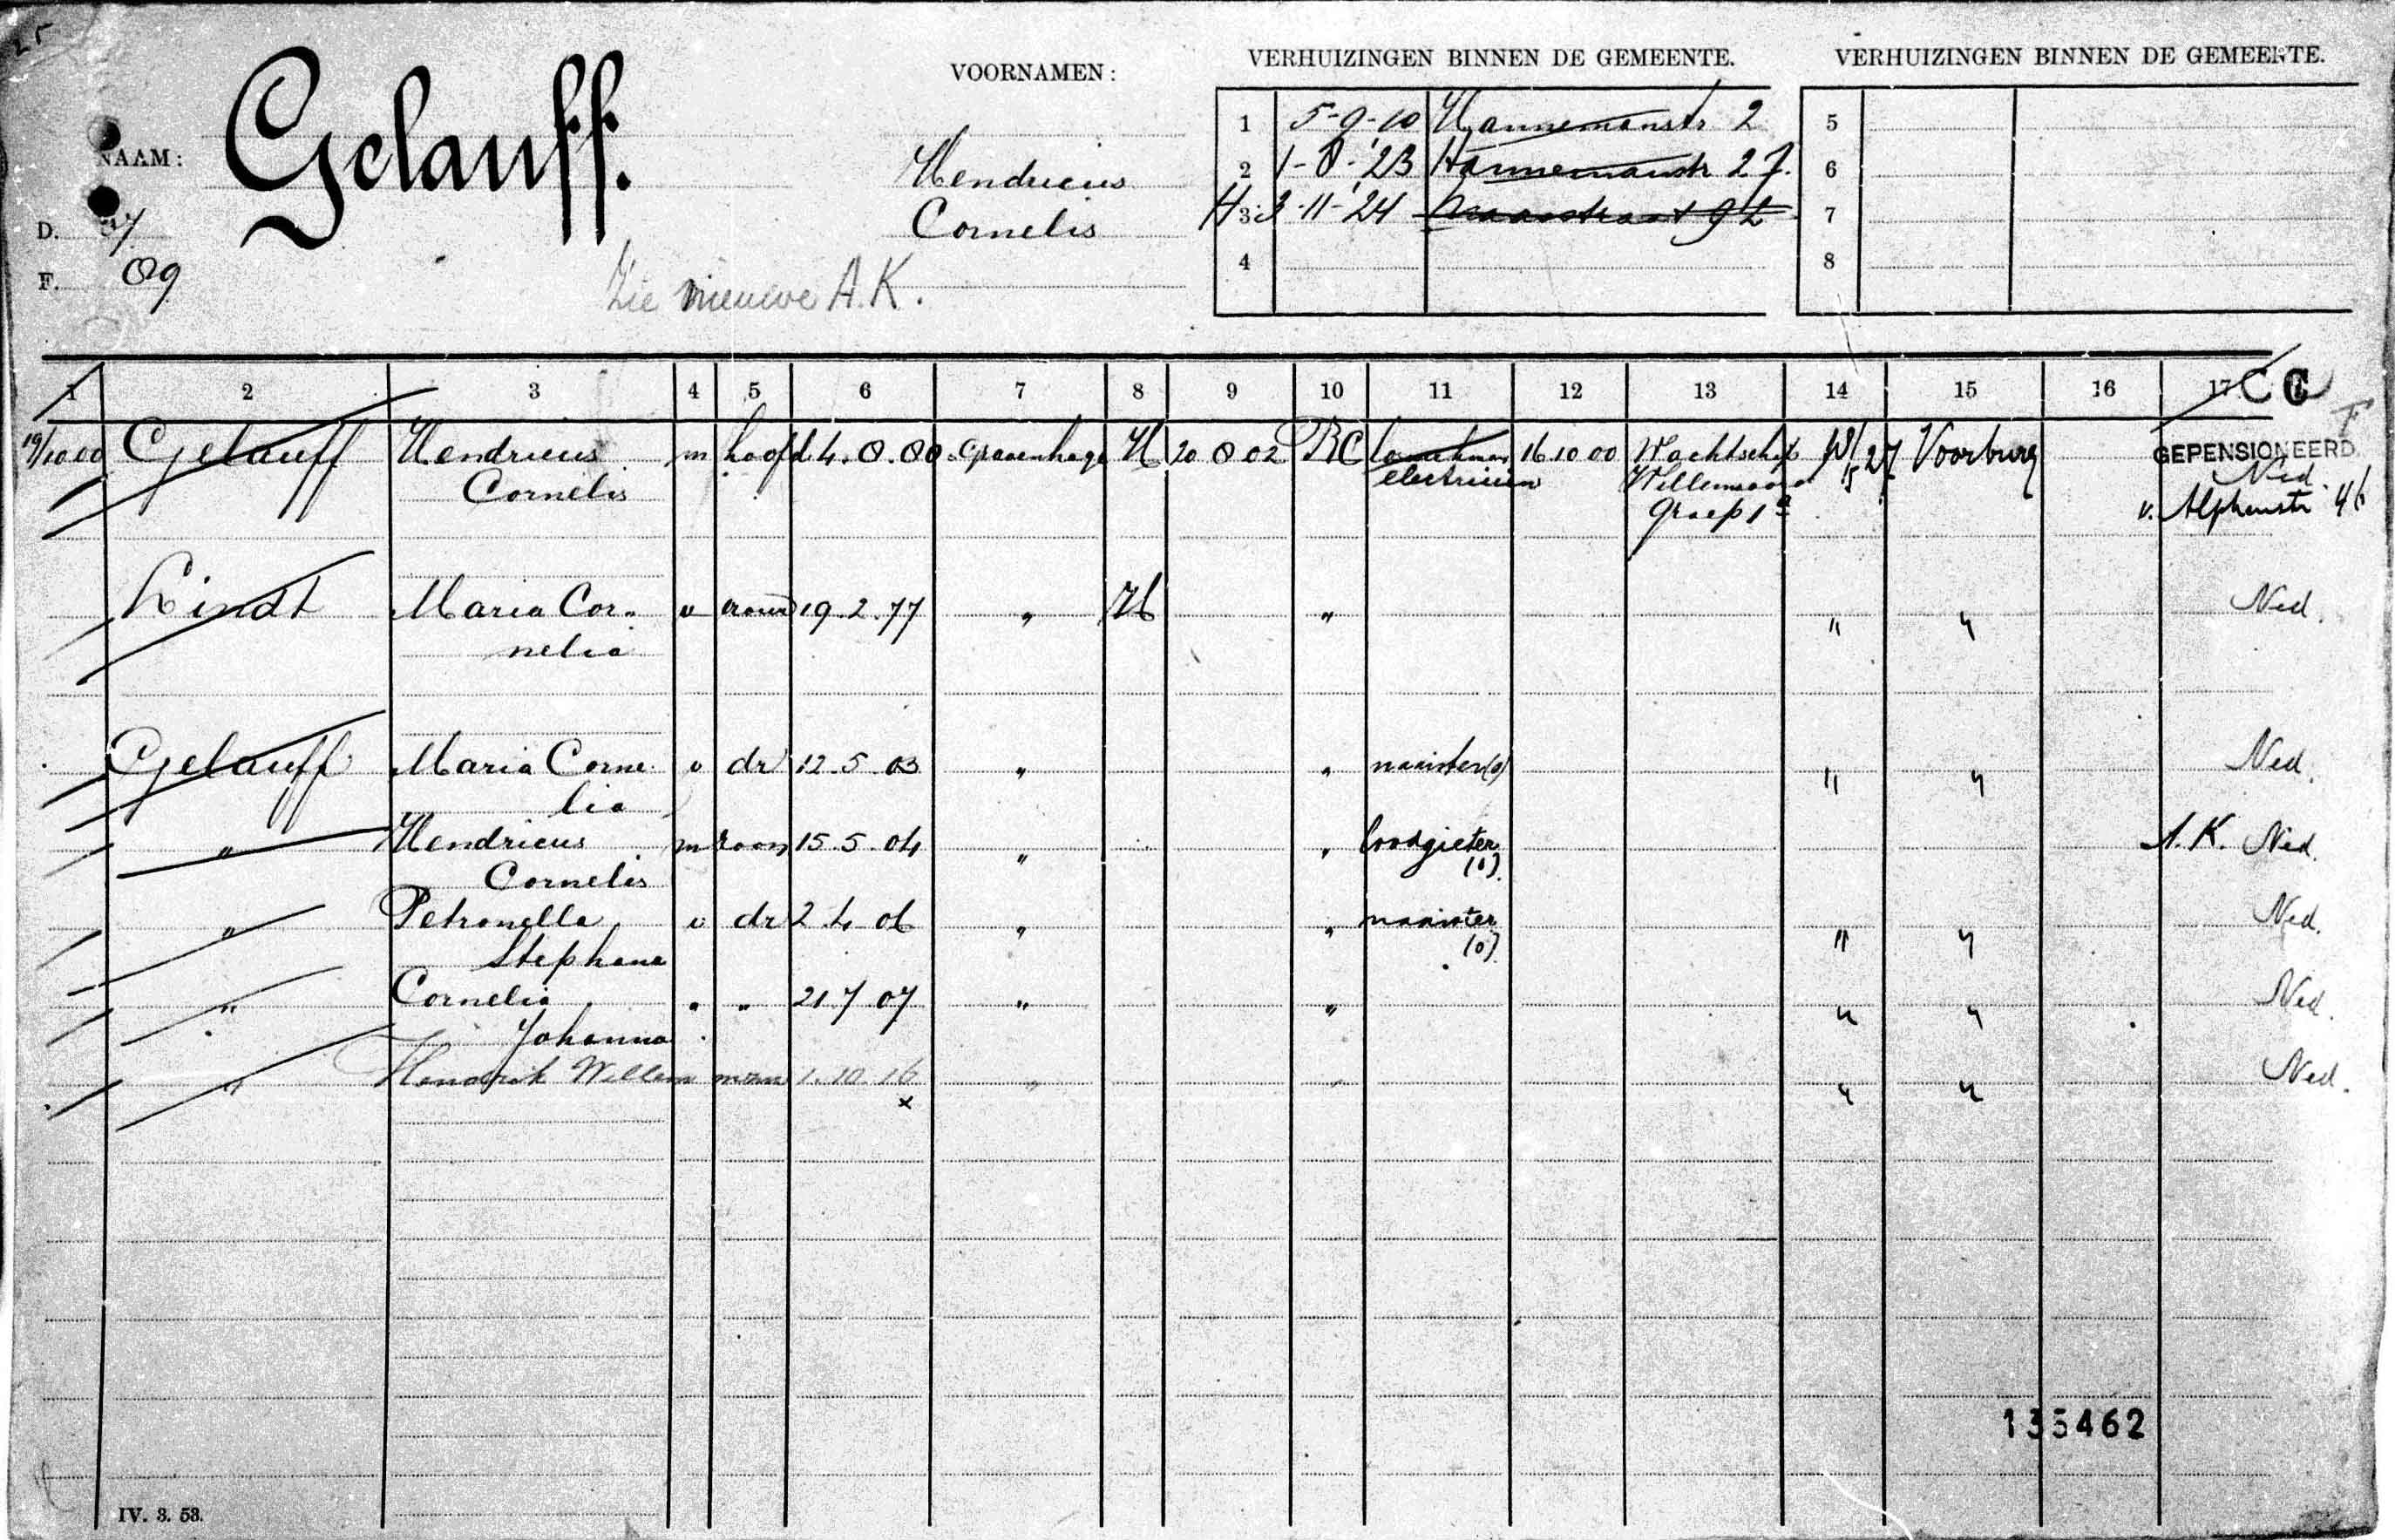 25
VERHUIZINGEN BINNEN DE GEMEENTE.
VERHUIZINGEN BINNEN DE GEMEENTE.
VOORNAMEN:
NAAM: Gelauff.
Hendricus
Cornelis
1 5-9-10 Hannemanstr 2
2 1-8-'23 Hannemanstr 27.
H 3 3-11-'24 Maasstraat 92
4
5
6
7
8
D.
F. 89
Zie nieuwe A.K.
1 2 3 4 5 6 7 8 9 10 11 12 13 14 15 16 17 C C
19/10 00 Gelauff Hendricus m hoofd 4.8.80 Gravenhage H 20 8 02 RC 16 10 00 Wachtschip 27 Voorburg GEPENSIONEERD
Cornelis electricien Willemsoord Ned.
Groep 1e v. Alphenstr 46
Lindt Maria Cor- v vrouw 19.2.77 " H " " " Ned.
nelia
Gelauff Maria Corne- v dr 12.5.03 " " naaister(o) " " Ned.
lia
" Hendricus m zoon 15.5.04 " " loodgieter A.K. Ned.
Cornelis (o)
" Petronella v dr 2.4.06 " " naaister " " Ned.
Stephana (o)
" Cornelia " " 21.7.07 " " " " Ned.
Johanna
" Hendrik Willem m zn 1.10.16 " " " " Ned.
x
135462
IV. 3. 53.